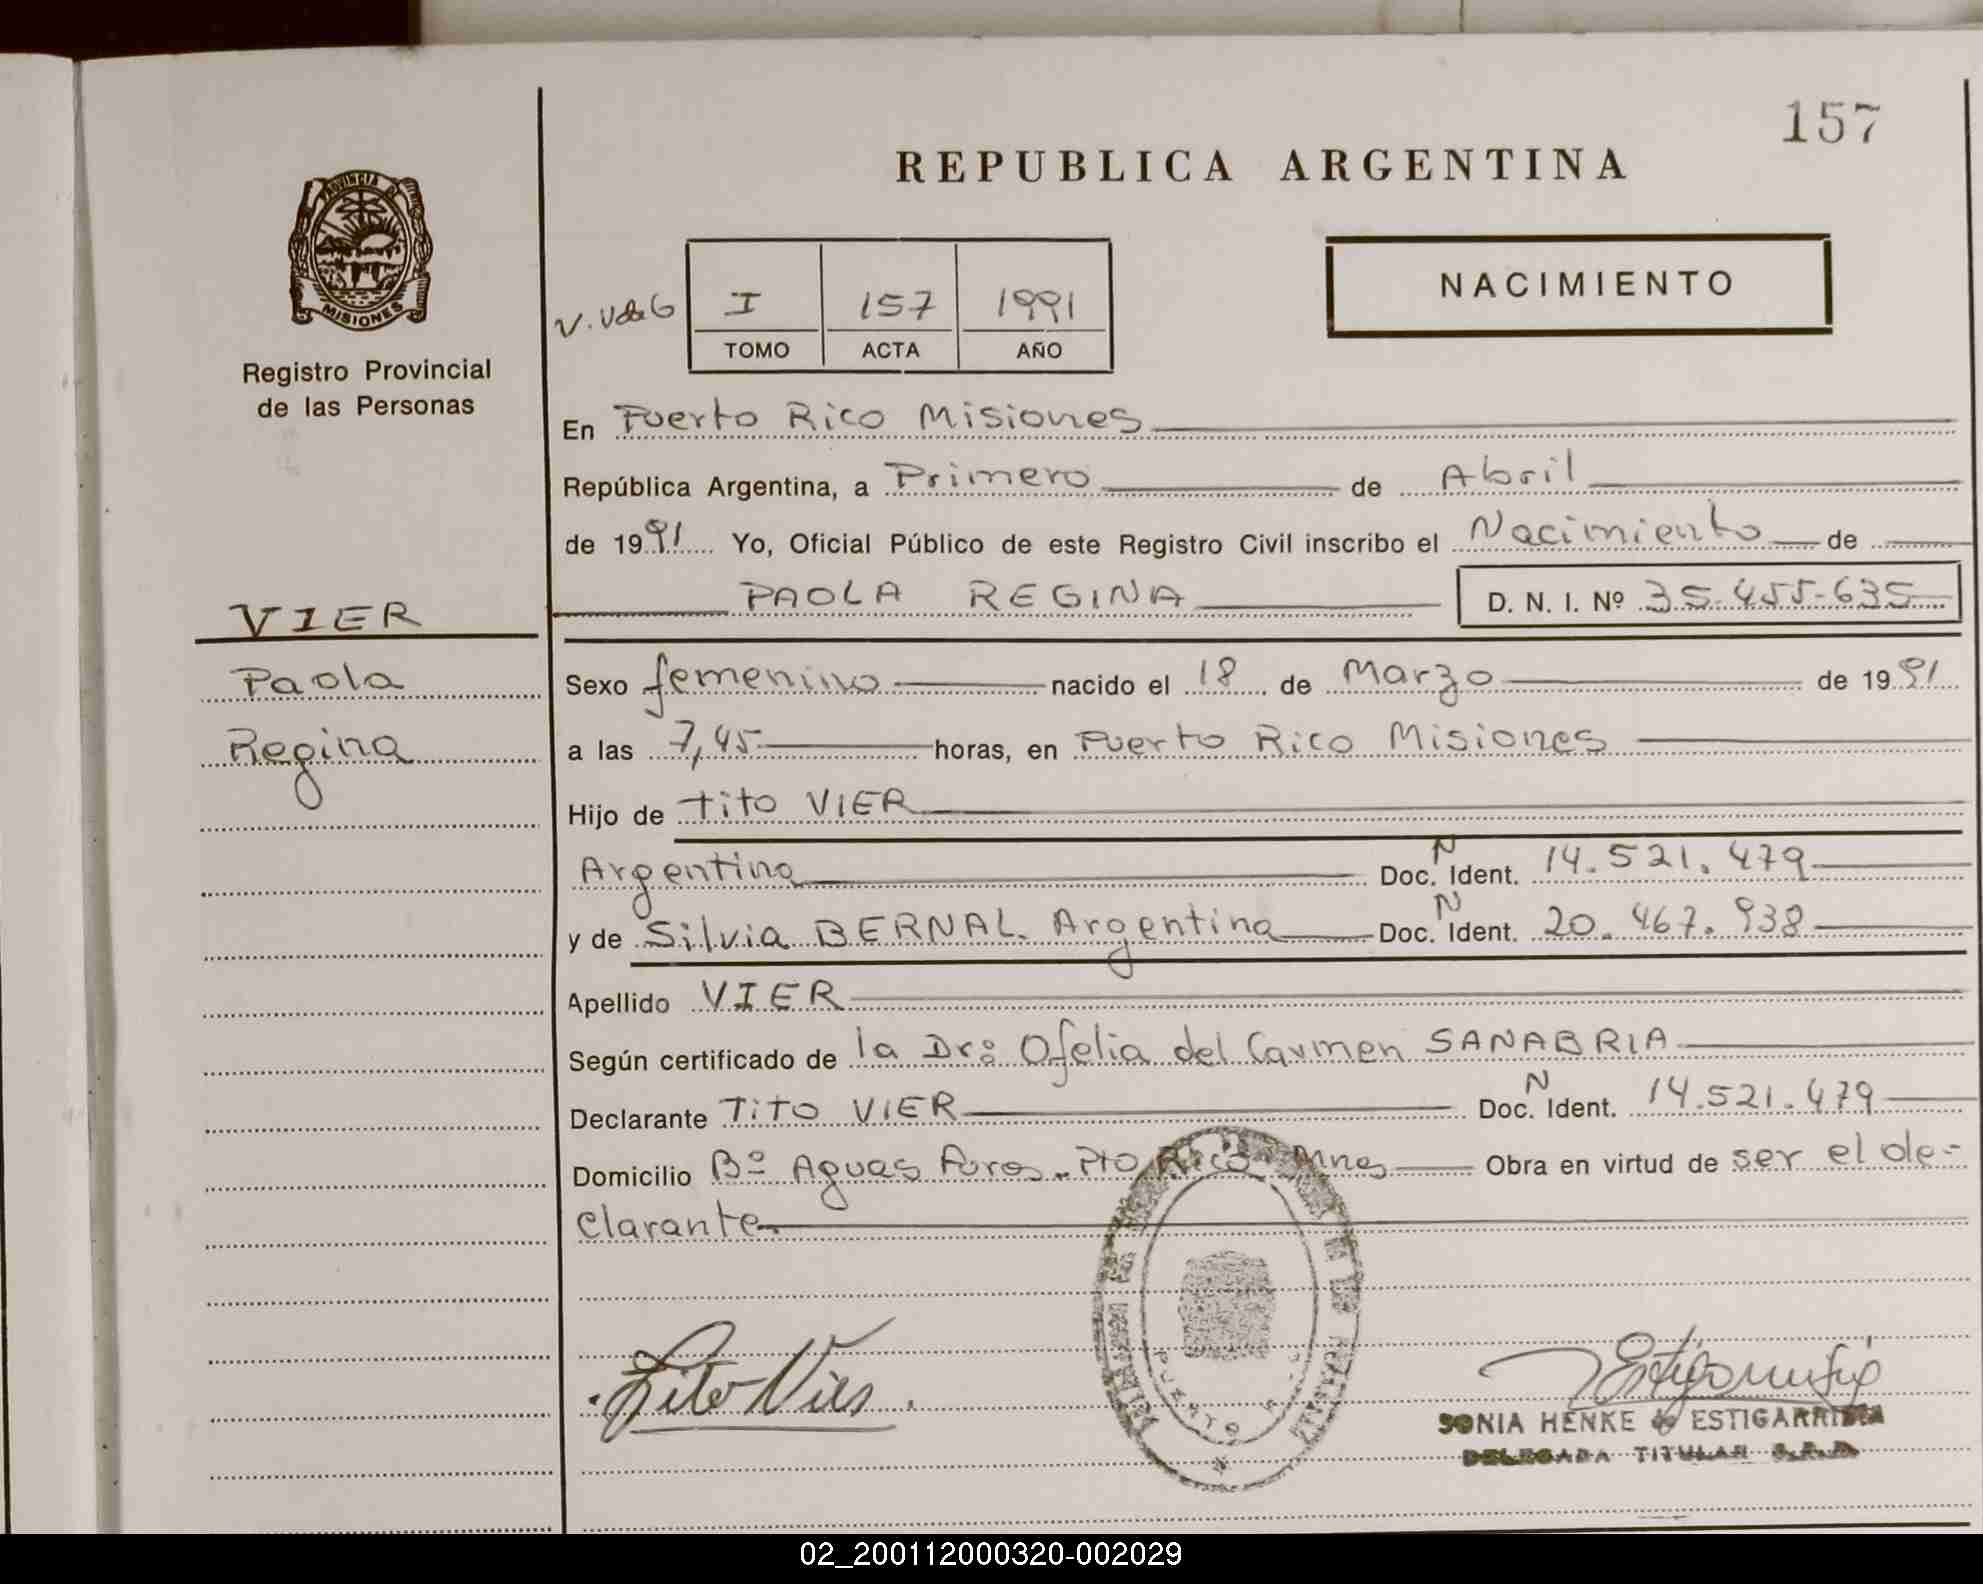 157
REPUBLICA ARGENTINA
PROVINCIA DE
MISIONES
Registro Provincial
de las Personas
NACIMIENTO
I 157 1991
TOMO ACTA AÑO
En Puerto Rico Misiones
República Argentina, a Primero de Abril
de 1991 Yo, Oficial Público de este Registro Civil inscribo el Nacimiento de
PAOLA REGINA D. N. I. Nº 35.455.635
VIER
Paola
Regina
Sexo femenino nacido el 18 de Marzo de 1991
a las 7,45 horas, en Puerto Rico Misiones
Hijo de Tito VIER
Argentino Doc. N Ident. 14.521.479
y de Silvia BERNAL. Argentina Doc. N Ident. 20.467.938
Apellido VIER
Según certificado de la Dra Ofelia del Carmen SANABRIA
Declarante TITO VIER Doc. N Ident. 14.521.479
Domicilio Bº Aguas Puras. Pto Rico Mnes Obra en virtud de ser el de-
clarante.
Tito Vier
PUERTO RICO
SONIA HENKE de ESTIGARRIBIA
DELEGADA TITULAR R.P.P.
02_200112000320-002029